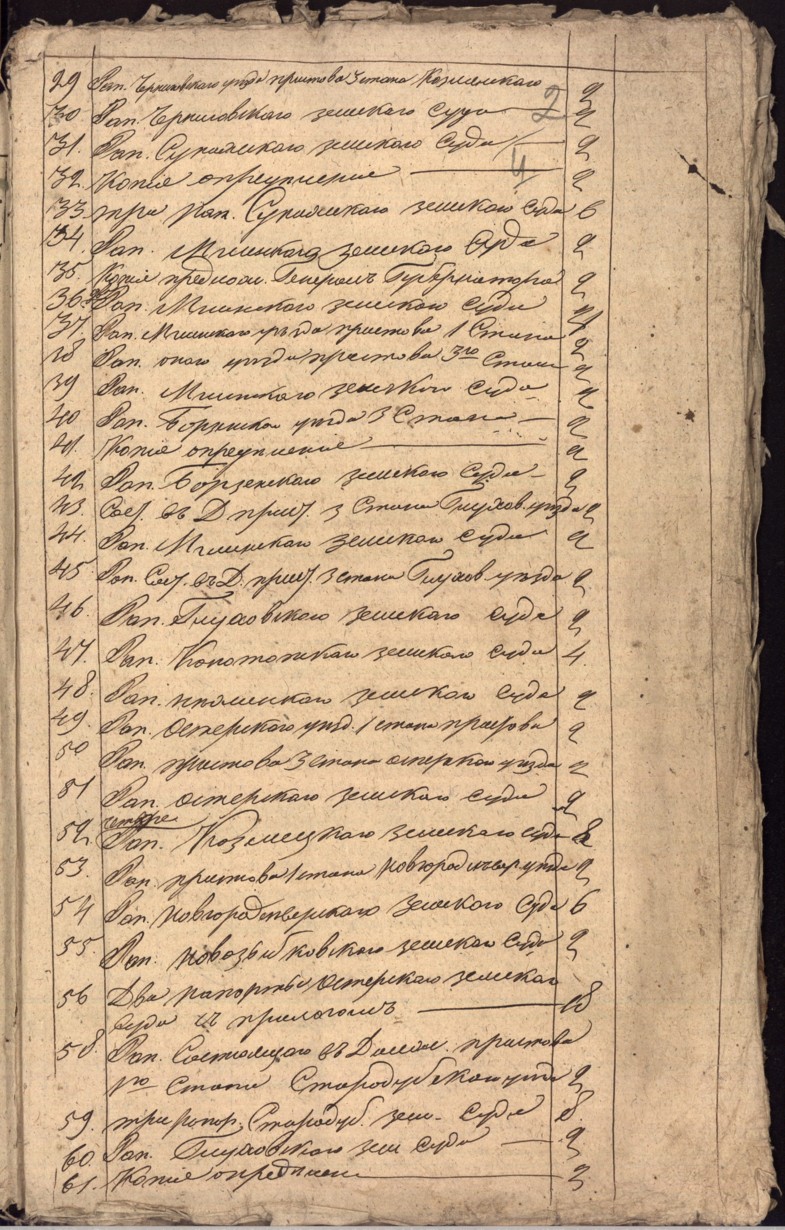 29 Рап. Черниговского уезда пристова 3 стана Козминскаго 2
30 Рап. Черниговского земскаго суда — 2 2
31. Рап. Суражскаго земскаго суда — 2
32. Копие опредиление — 4 2
33. три рап. Суражскаго земскаго суда 6
34. Рап. Мглинскаго земскаго суда 2
35. Копие предпис. Генерал Губернатора 2
36 Рап. Мглинскаго земскаго суда
37. Рап. Мглинскаго уезда пристова 1 Стана 2
38 Рап. онаго уезда пристова 3го Стана 2
39 Рап. Мглинскаго земскаго суда
40 Рап. уезда 3 Стана — 2
41. Копие опредиление — 2
42 Рап. Борзенскаго земскаго суда 2
43. Сос. въ Д прис. 3 Стана Глухов. уезда 2
44. Рап. Мглинскаго земскаго суда 2
45. Рап. Сос. въ Д. прис. 3 стана Глухов уезда 2
46. Рап. Глуховскаго земскаго суда 2
47. Рап. Конотопскаго земскаго суда 4.
48. Рап. земскаго суда 2
49. Рап. Остерскаго уезд. 1 стана пристова 2
50 Рап. пристова 3 стана остерскаго уезда 2
51 Рап. остерскаго земскаго суда 2
четыре
52. Рап. Козелецкаго земскаго суда 8
53. Рап. пристова 1 стана Новгородсевер уезда 2
54 Рап. Новгородсеверскаго земскаго суда 6
55 Рап. новозыбковскаго земскаго суда 2
56 Два рапорты остерскаго земскаго
суда съ прилогом — 18
58. Рап. Состоящаго въ Долж. пристова
1го Стана Стародубскаго уезда 2
59. три рапор. Стародуб. зем. суда 8.
60. Рап. Глуховскаго зем суда — 2
61. Копие опредилен — 2